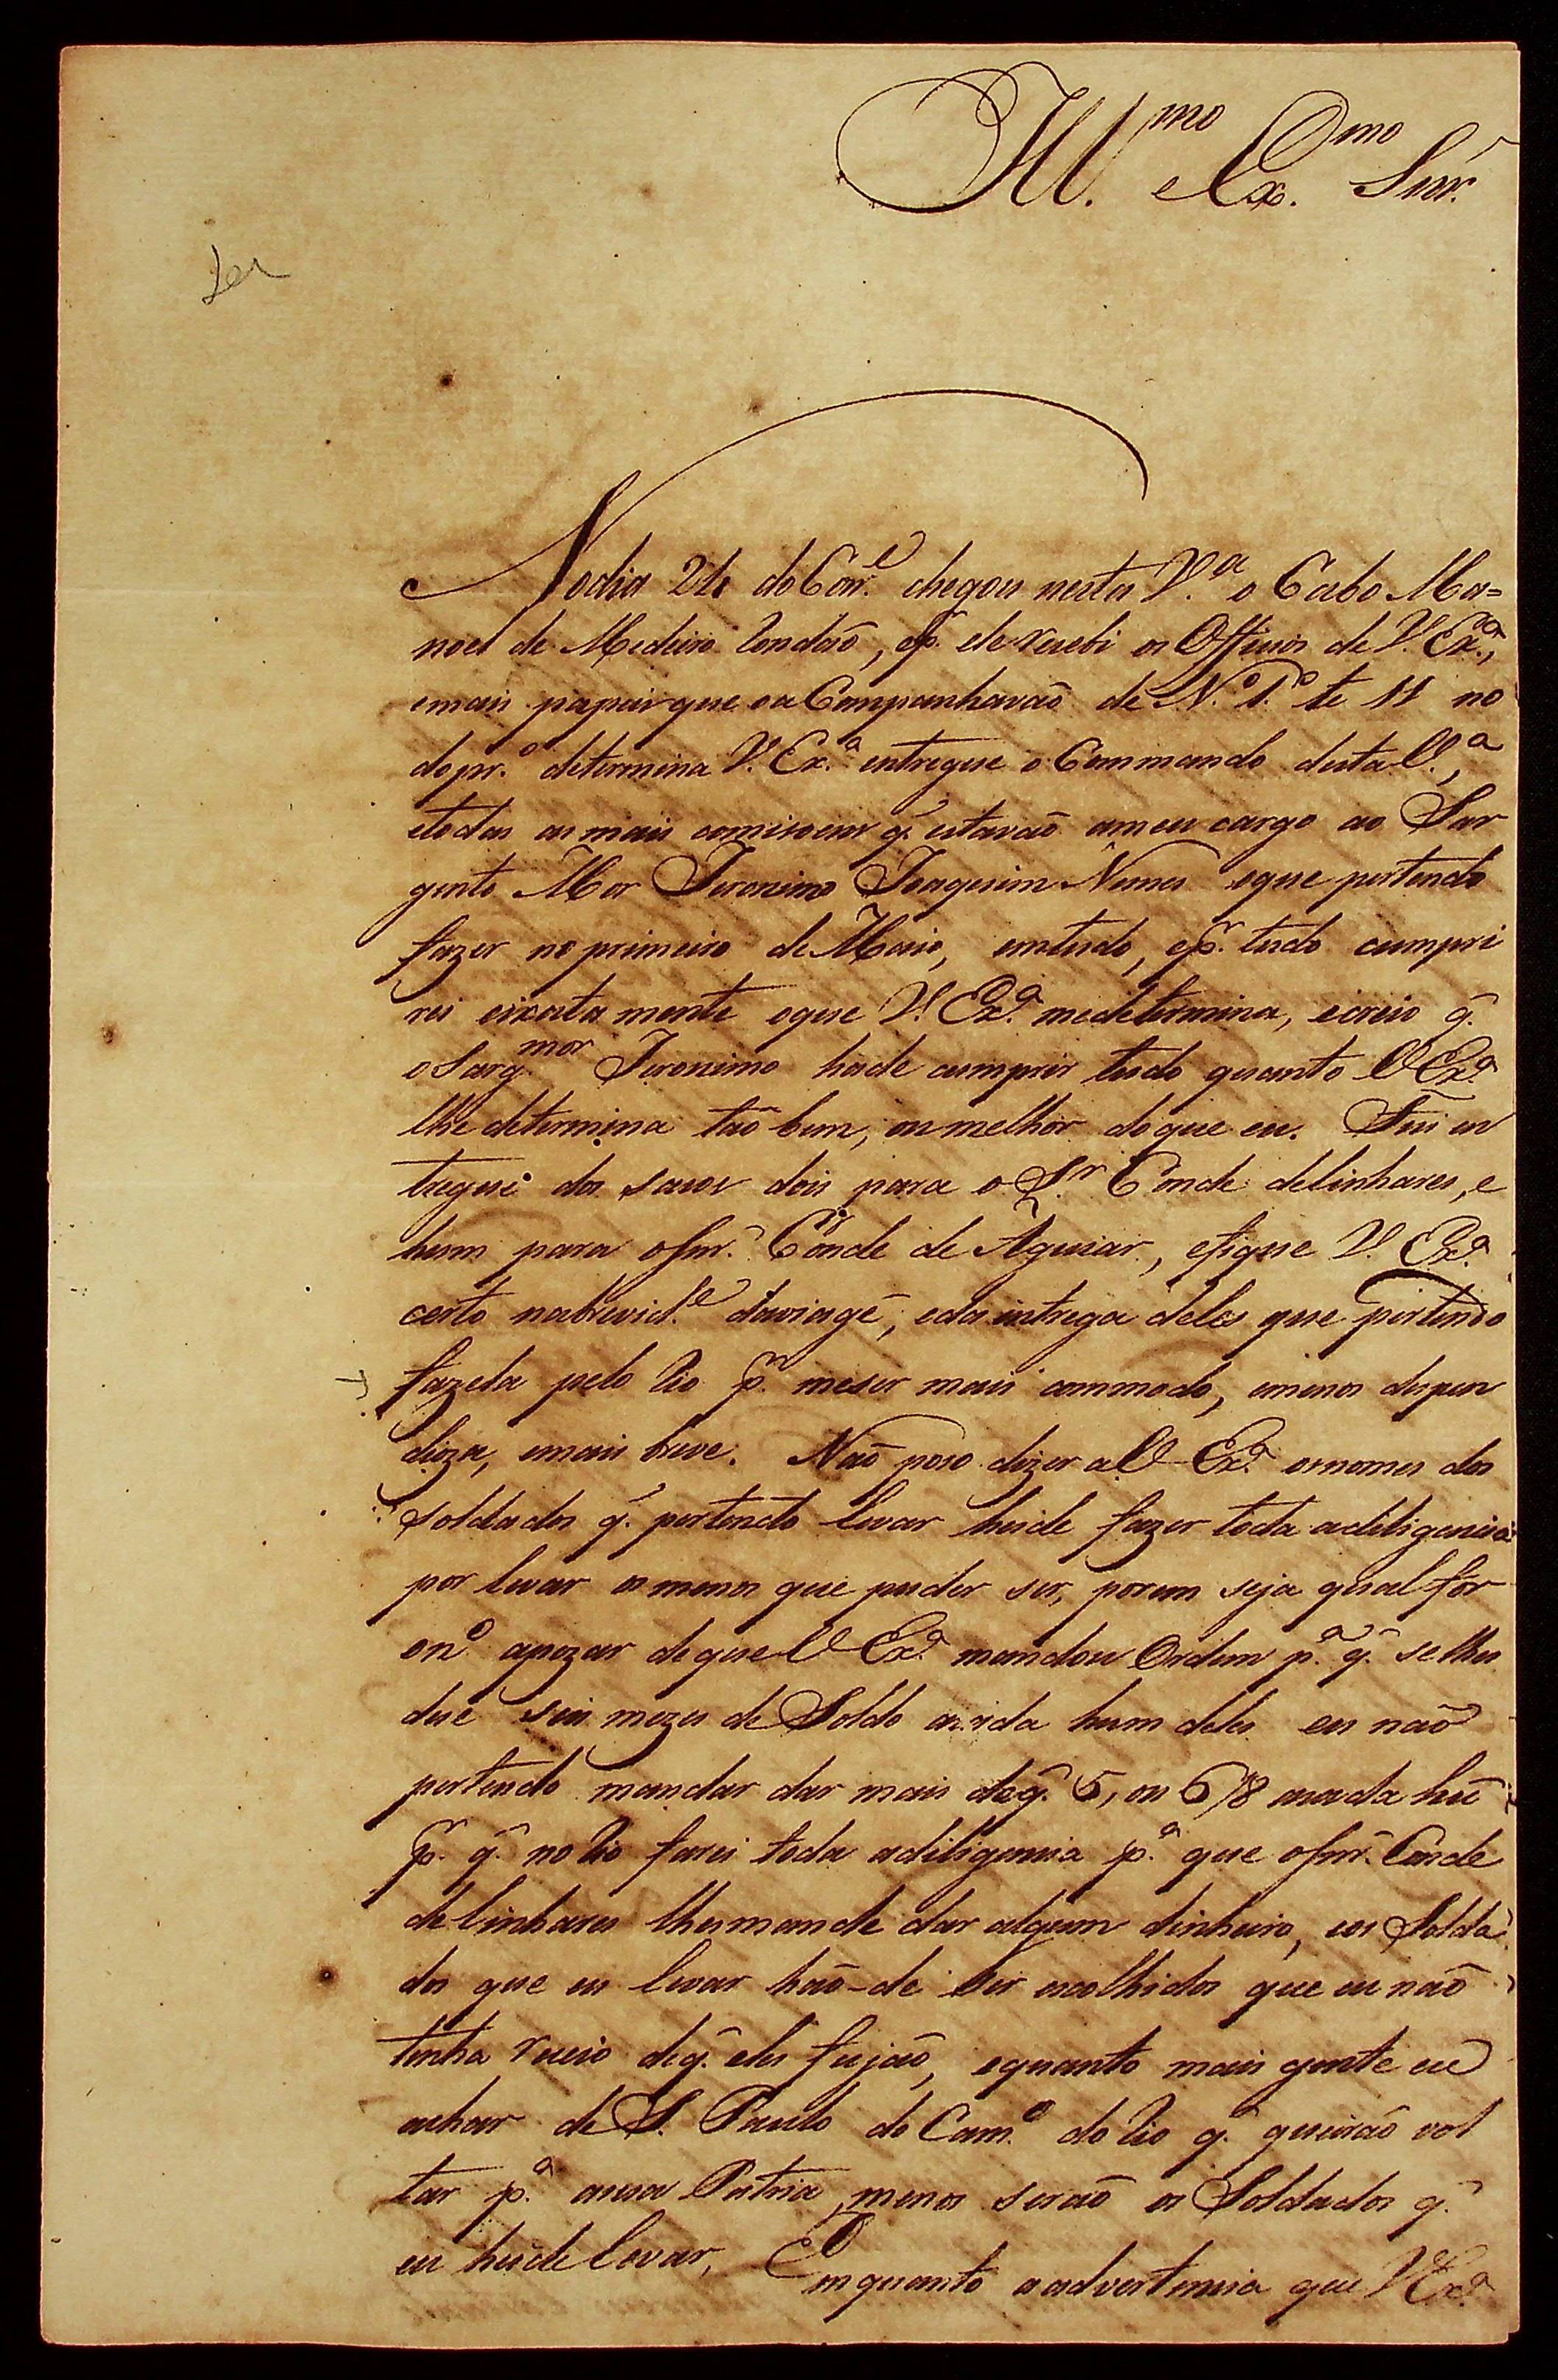 Ill.mo e Ex.mo Snr.
Ler
No dia 24 do Corr.e chegou nesta V.a o Cabo Ma=
noel de Medeiro Rondaõ, e p.r ele recebi os Officios de V. Ex.a,
e mais papais que o a Companhavaõ de N.o 1.o te 11 no
do pr.o determina V. Ex.a entregue o Commando desta V.a,
e todas as mais comisoens q̃. estavaõ a meu cargo ao Sar
gento Mor Jeronimo Joaquim Nunes o que pertendo
fazer no primeiro de Maio, em tudo, e p.r tudo cumpri
rei eixata mente o que V. Ex.a me determina, e creio q̃.
o Sarg.mor Jeronimo hade cumprir tudo quanto V Ex.a
lhe determina taõ bem, ou melhor do que eu. Fui en
tregue dos sacos dois para o S.r Conde de Linhares, e
hum para o Snr. Conde de Aguiar, e fique V. Ex.a
certo na brevid.e da viagẽ, e da intrega deles que pertendo
fazela pelo Rio p.r me ser mais commodo, e menos despen
dioza, e mais breve. Naõ poso dizer a V Ex.a os nomes dos
Soldados q̃. pertendo levar heide fazer toda a deligencia
por levar os menos que puder ser, porem seja qual for
o n.o apezar de que V Ex.a mandou Ordem p.a q̃. se lhes
dese seis mezes de Soldo a cada hum deles eu naõ
pertendo mandar dar mais de q̃. 5, ou 6/8 a cada hũ
p.r q̃. no Rio farei toda a diligencia p.a que o Snr. Conde
de Linhares lhes mande dar algum dinheiro, e os Solda
dos que eu levar haõ-de ser escolhidos que eu naõ
tenha receio de q̃. eles fujaõ, e quanto mais gente eu
achar de S. Paulo do Cam.o do Rio q̃. queiraõ vol
tar p.a a sua Patria, menos seraõ os Soldados q̃.
eu heide levar, Em quanto a advertencia que V Ex.a